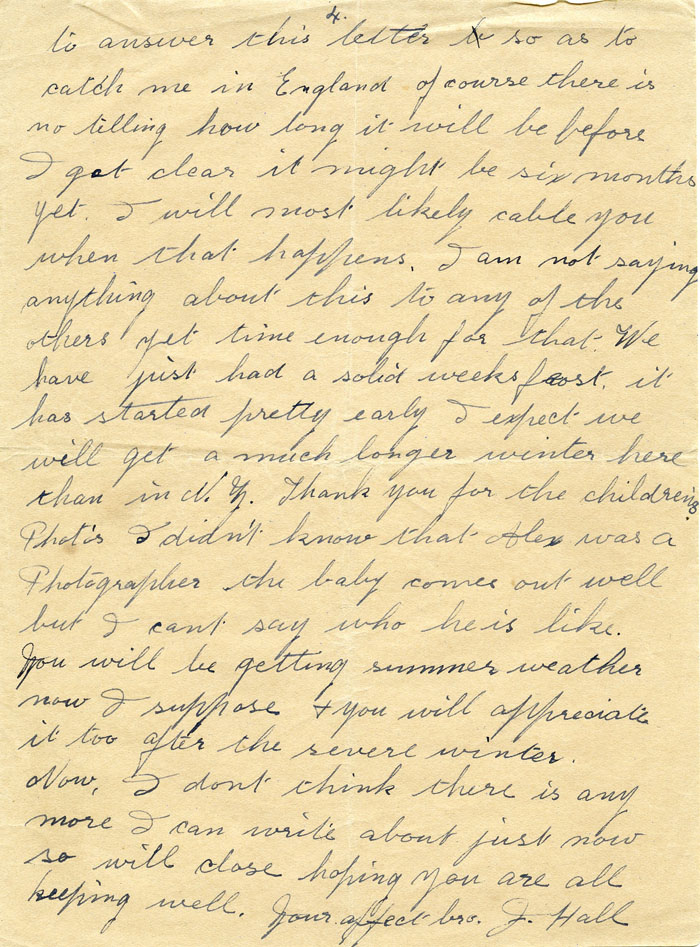 4.
to answer this letter so as to
catch me in England of course there is
no telling how long it will be before
I get clear it might be six months
yet. I will most likely cable you
when that happens. I am not saying
anything about this to any of the
others yet time enough for that. We
have just had a solid weeks frost. it
has started pretty early I expect we
will get a much longer winter here
than in N. Z. Thank you for the children's
Photo's I didn't know that Alex was a
Photographer the baby comes out well
but I cant say who he is like.
You will be getting summer weather
now I suppose & you will appreciate
it too after the severe winter.
Now, I dont think there is any
more I can write about just now
so will close hoping you are all
keeping well. Your affect bro. J. Hall